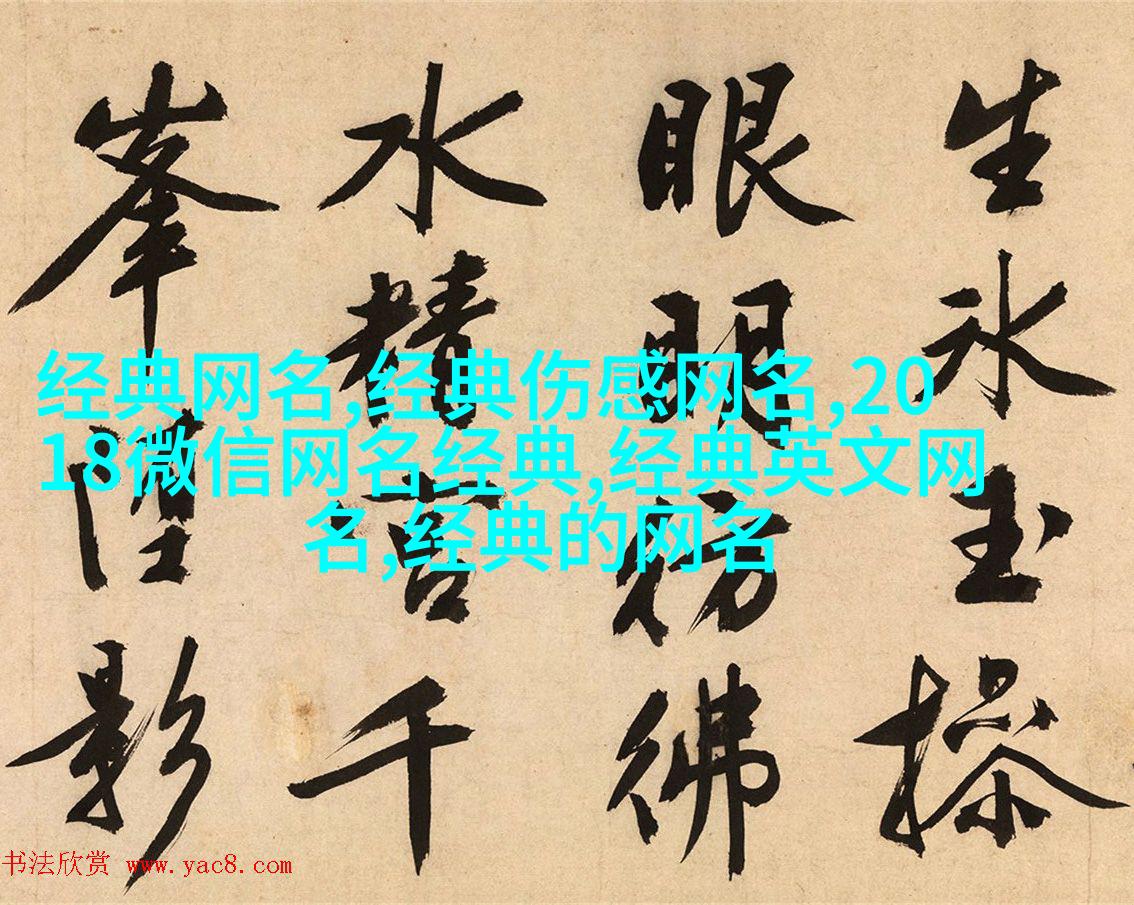 生氷玉操
眼明彷彿
水精宮千
峯墮影
经典网名,经典伤感网名,20
18微信网名经典,经典英文网
名,经典的网名
书法欣赏 www.yac8.com